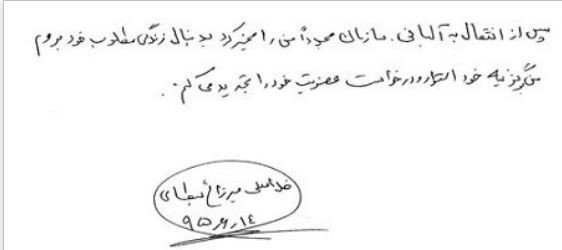 پس از انتقال به آلبانی. سازمان مجدداً من را مخیر کرد به دنبال زندگی مطلوب خود بروم
من گزینه خود استوار و درخواست عضویت خود را تجدید می کنم.
خداعلی میرزاخ
۹۵،۶،۱۴